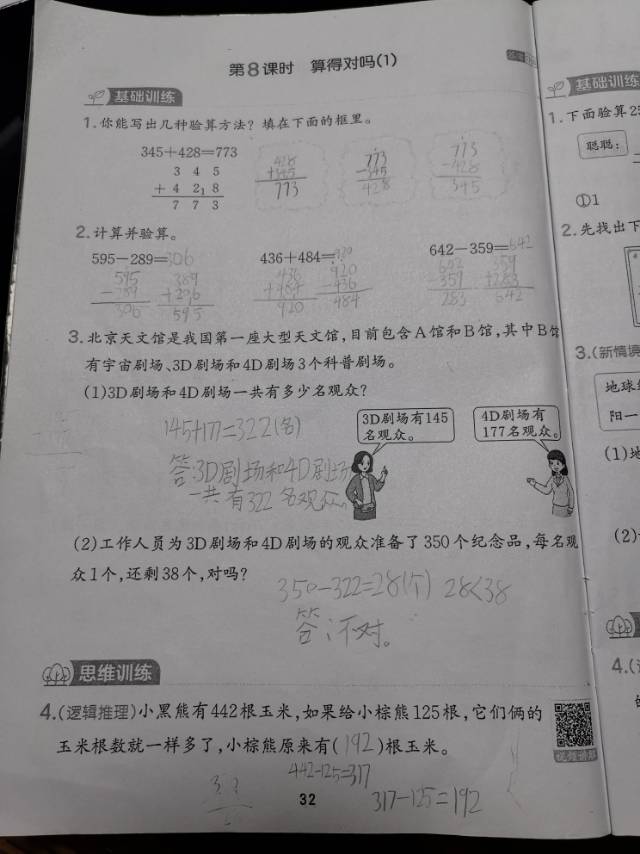 第8课时 算得对吗(1)
基础训练
1.你能写出几种验算方法?填在下面的框里。
345+428=773
3 4 5
+ 4 2 1 8
7 7 3
428
+345
773
773
-345
428
773
-428
345
2.计算并验算。
595-289=306
436+484=920
642-359=642
595
-289
306
389
+206
595
436
+484
920
920
-436
484
642
-359
283
359
+283
642
3.北京天文馆是我国第一座大型天文馆,目前包含A馆和B馆,其中B馆
有宇宙剧场、3D剧场和4D剧场3个科普剧场。
(1)3D剧场和4D剧场一共有多少名观众?
145+177=322(名)
答:3D剧场和4D剧场
一共有322名观众。
3D剧场有145
名观众。
4D剧场有
177名观众。
(2)工作人员为3D剧场和4D剧场的观众准备了350个纪念品,每名观
众1个,还剩38个,对吗?
350-322=28(个) 28<38
答:不对。
思维训练
4.(逻辑推理)小黑熊有442根玉米,如果给小棕熊125根,它们俩的
玉米根数就一样多了,小棕熊原来有(192)根玉米。
442-125=317
317-125=192
视频讲解
32
基础训练
1.下面验算2
聪聪:
①1
2.先找出下
3.(新情境
地球
阳一
(1)地
(2)
4.(